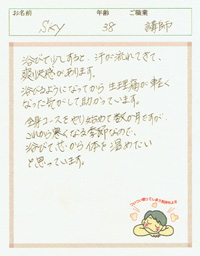 お名前 年齢 ご職業
SKY 38 講師
浴びて少しすると、汗が流れてきて、
爽快感があります。
浴びるようになってから生理痛が軽く
なった気がして助かっています。
全身コースをやり始めて数か月ですが、
これから寒くなる季節なので、
浴びて芯から体を温めたい
と思っています。